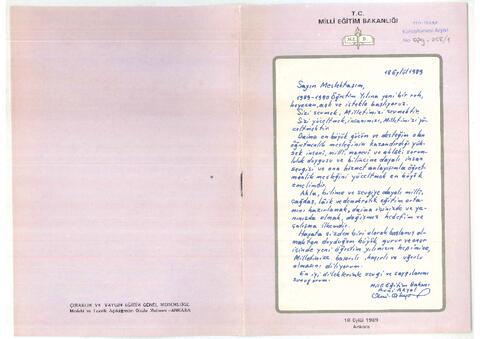 T. C.
MİLLİ EĞİTİM BAKANLIĞI
M.E. B.
Kütüphanesi Arşivi
No
18 Eylül 1989
Sayın Meslektaşım,
1989-1990 Öğretim Yılına yeni bir ruh,
heyecan, aşk ve istekle başlıyoruz.
Sizi sevmek, Milletimizi sevmektir.
Sizi yüceltmek, insanımızı, Milletimizi yü-
celtmektir.
Daima en büyük gücüm ve desteğim olan
öğretmenlik mesleğinin kazandırdığı yük-
sek insani, milli, manevi ve ahlaki sorum-
luluk duygusu ve bilincine dayalı, insan
sevgisi ve ona hizmet anlayışımla öğret-
menlik mesleğini yüceltmek en büyük
emelimdir.
Akla, bilime ve sevgiye dayalı milli,
çağdaş, lâik ve demokratik eğitim orta-
mını hazırlamak, daima içinizde ve ya-
nınızda olmak, değişmez hedefim ve
çalışma ilkemdir.
Hayata sizden biri olarak başlamış ol-
maktan duyduğum büyük gurur ve onur
içinde yeni öğretim yılımızın hepimize,
Milletimize başarılı, hayırlı ve uğurlu
olmasını diliyorum.
En iyi dileklerimle sevgi ve saygılarımı
sunuyorum.
Milli Eğitim Bakanı
Avni Akyol
18 Eylül 1989
Ankara
ÇIRAKLIK VE YAYGIN EĞİTİM GENEL MÜDÜRLÜĞÜ
Mesleki ve Teknik Açıköğretim Okulu Matbaası - ANKARA